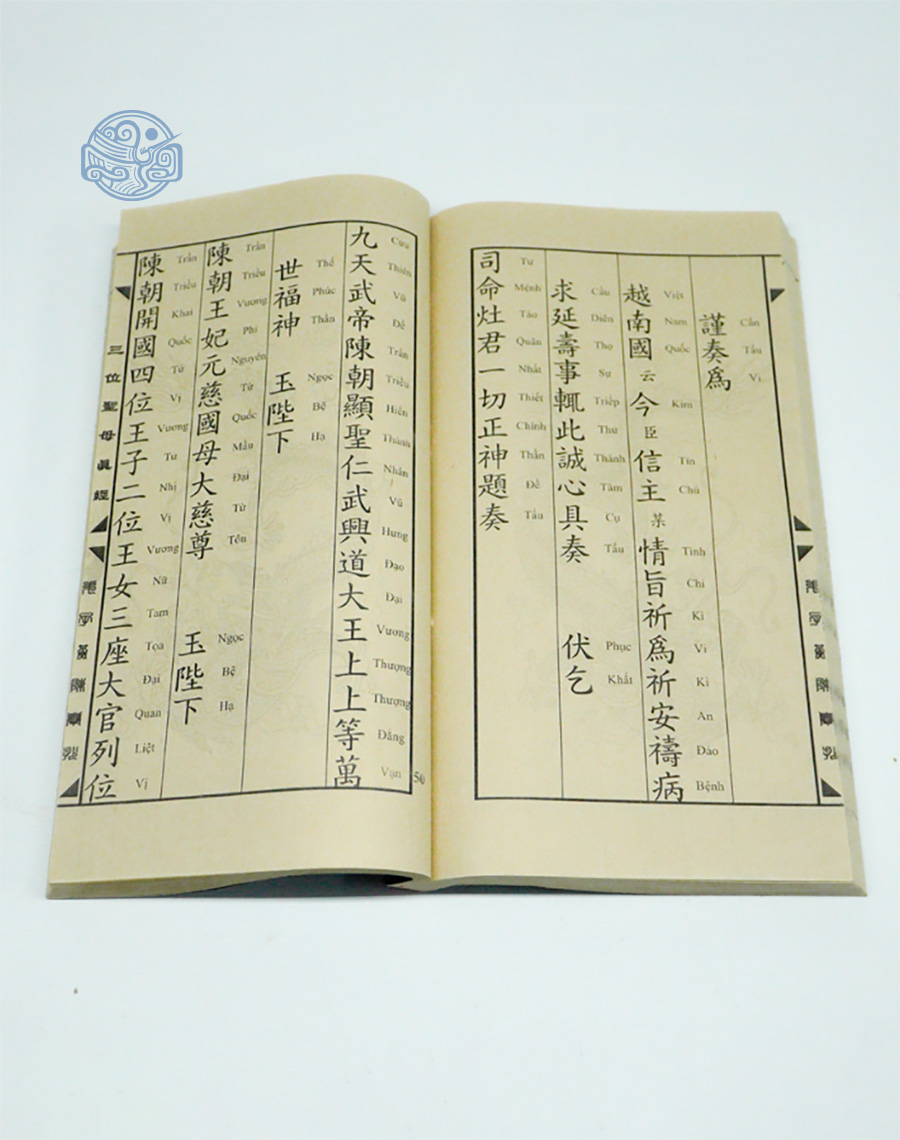 謹奏爲
Cẩn Tấu Vị
越南國云今臣信主某情旨祈爲祈安禱病
Việt Nam Quốc Kim Tín Chủ Tình Chỉ Kì Vi Kì An Đảo Bệnh
求延壽事輒此誠心具奏 伏乞
Cầu Diên Thọ Sự Triếp Thử Thành Tâm Cụ Tấu Phục Khất
司命灶君一切正神題奏
Tư Mệnh Táo Quân Nhất Thiết Chính Thần Đề Tấu
九天武帝陳朝顯聖仁武興道大王上上等萬
Cửu Thiên Vũ Đế Trần Triều Hiển Thánh Nhân Vũ Hưng Đạo Đại Vương Thượng Thượng Đẳng Vạn
50
世福神 玉陛下
Thế Phúc Thần Ngọc Bệ Hạ
陳朝王妃元慈國母大慈尊 玉陛下
Trần Triều Vương Phi Nguyên Từ Quốc Mẫu Đại Từ Tôn Ngọc Bệ Hạ
陳朝開國四位王子二位王女三座大官列位
Trần Triều Khai Quốc Tứ Vị Vương Tử Nhị Vị Vương Nữ Tam Tọa Đại Quan Liệt Vị
三位聖母眞經